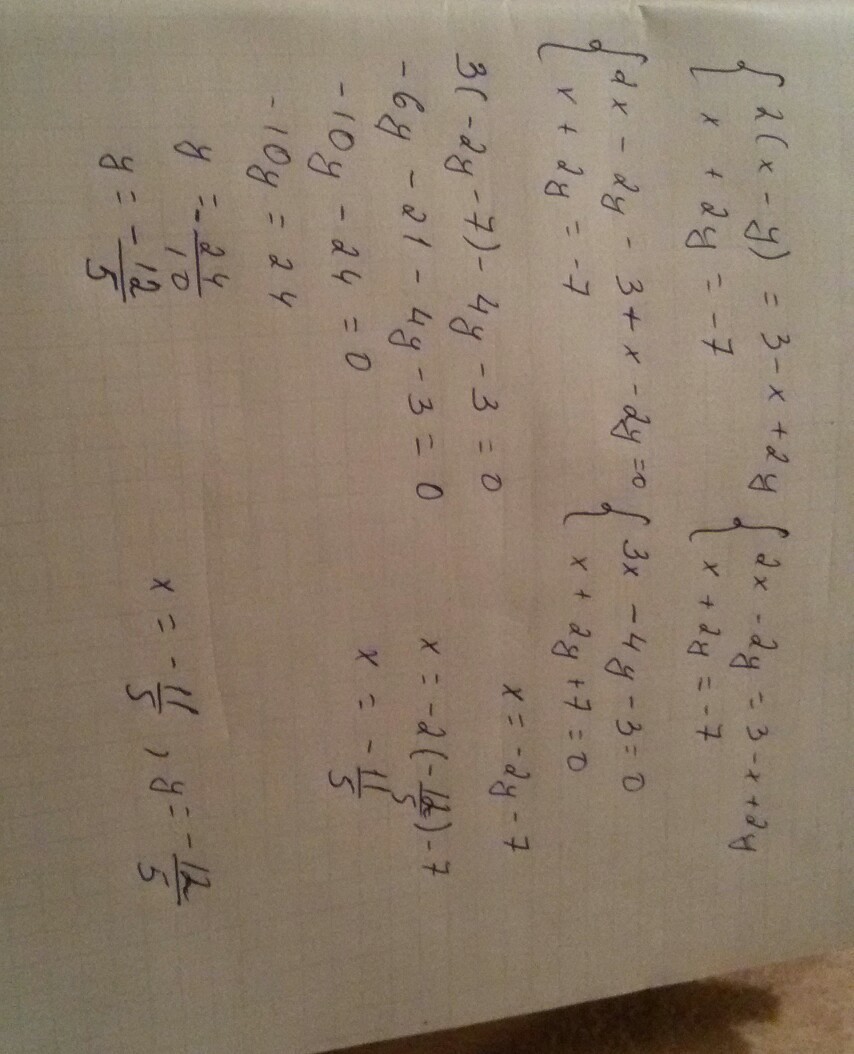 { 2(x - y) = 3 - x + 2y { 2x - 2y = 3 - x + 2y
x + 2y = -7 x + 2y = -7
{ 2x - 2y - 3 + x - 2y = 0 { 3x - 4y - 3 = 0
x + 2y = -7 x + 2y + 7 = 0
3(-2y - 7) - 4y - 3 = 0 x = -2y - 7
-6y - 21 - 4y - 3 = 0 x = -2(-12/5) - 7
-10y - 24 = 0 x = -11/5
-10y = 24
y = -24/10
y = -12/5 x = -11/5 , y = -12/5